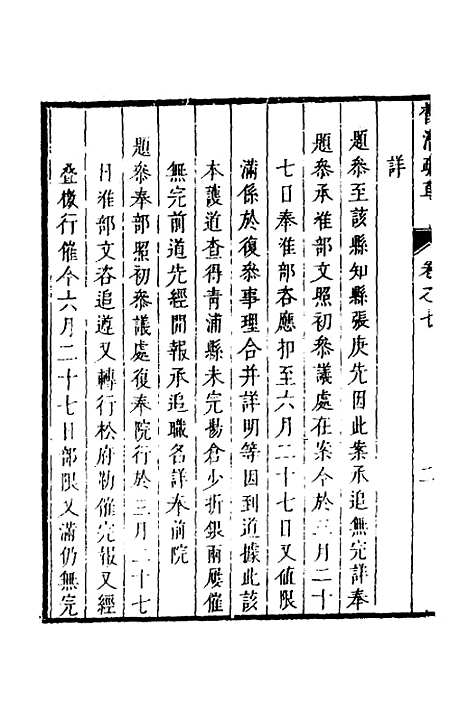 督漕疏草
卷之七
二
詳
題參至該縣知縣張庚先因此案承追無完詳奉
題參承准部文照初參議處在案今於三月二十
七日奉准部咨應扣至六月二十七日又值限
滿係於復參事理合并詳明等因到道據此該
本護道查得青浦縣未完楊倉少折銀兩屢催
無完前道先經開報承追職名詳奉前院
題參奉部照初參議處復奉院行於三月二十七
日准部文咨追遵又轉行松府勒催完報又經
疊檄行催今六月二十七日部限又滿仍無完